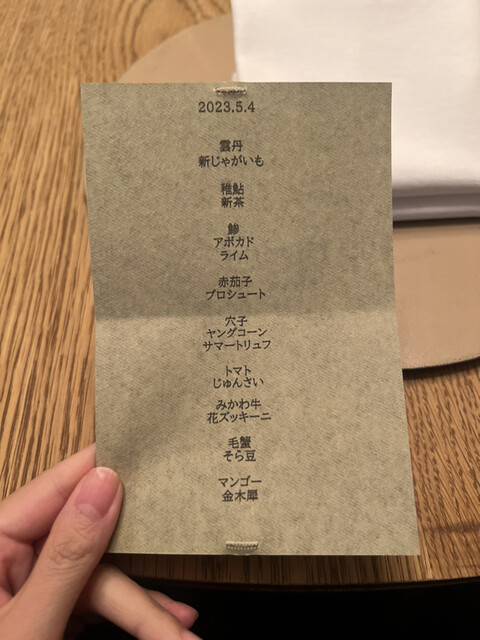 2023.5.4
雲丹
新じゃがいも
稚鮎
新茶
鯵
アボカド
ライム
赤茄子
プロシュート
穴子
ヤングコーン
サマートリュフ
トマト
じゅんさい
みかわ牛
花ズッキーニ
毛蟹
そら豆
マンゴー
金木犀